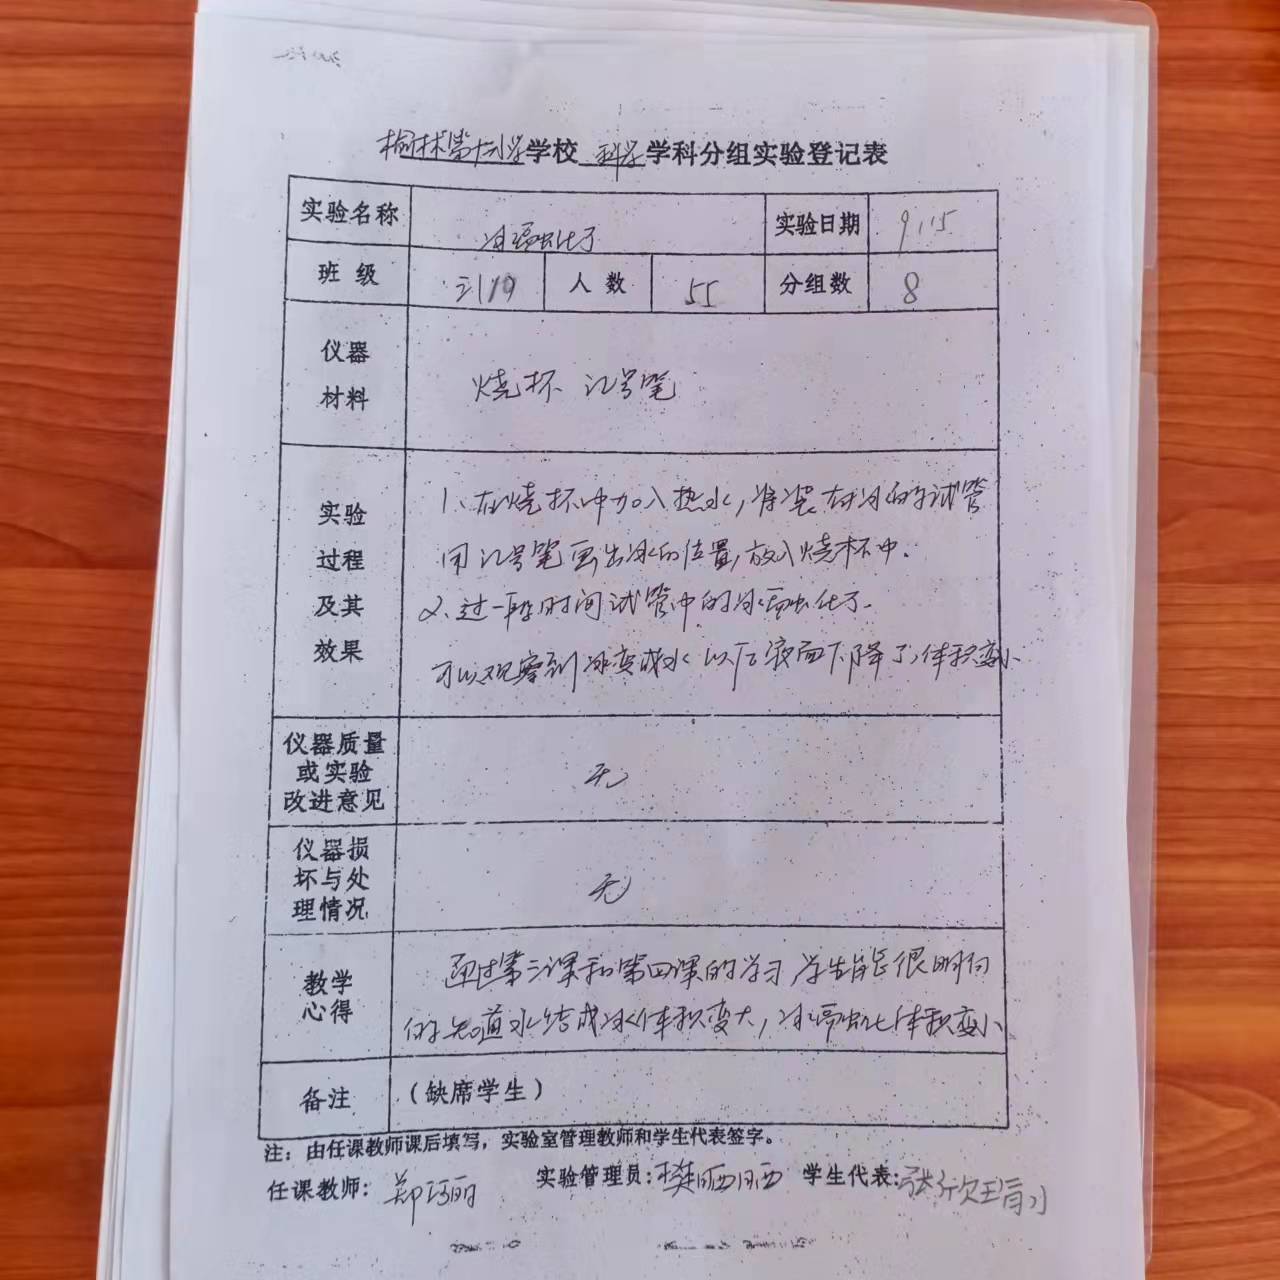 榆林第十小学学校 科学 学科分组实验登记表
实验名称 冰融化了 实验日期 9.15
班级 三119 人数 55 分组数 8
仪器
材料
烧杯 记号笔
实验
过程
及其
效果
1、在烧杯中加入热水,将装有冰的试管
用记号笔画出冰的位置,放入烧杯中.
2、过一段时间试管中的冰融化了.
可以观察到冰变成水以后液面下降了,体积变小
仪器质量
或实验
改进意见
无
仪器损
坏与处
理情况
无
教学
心得
通过第三课和第四课的学习,学生能很明白
的知道水结成冰体积变大,冰融化体积变小
备注 (缺席学生)
注:由任课教师课后填写,实验室管理教师和学生代表签字。
任课教师: 郑 丽 实验管理员:樊晒晒 学生代表:张欣